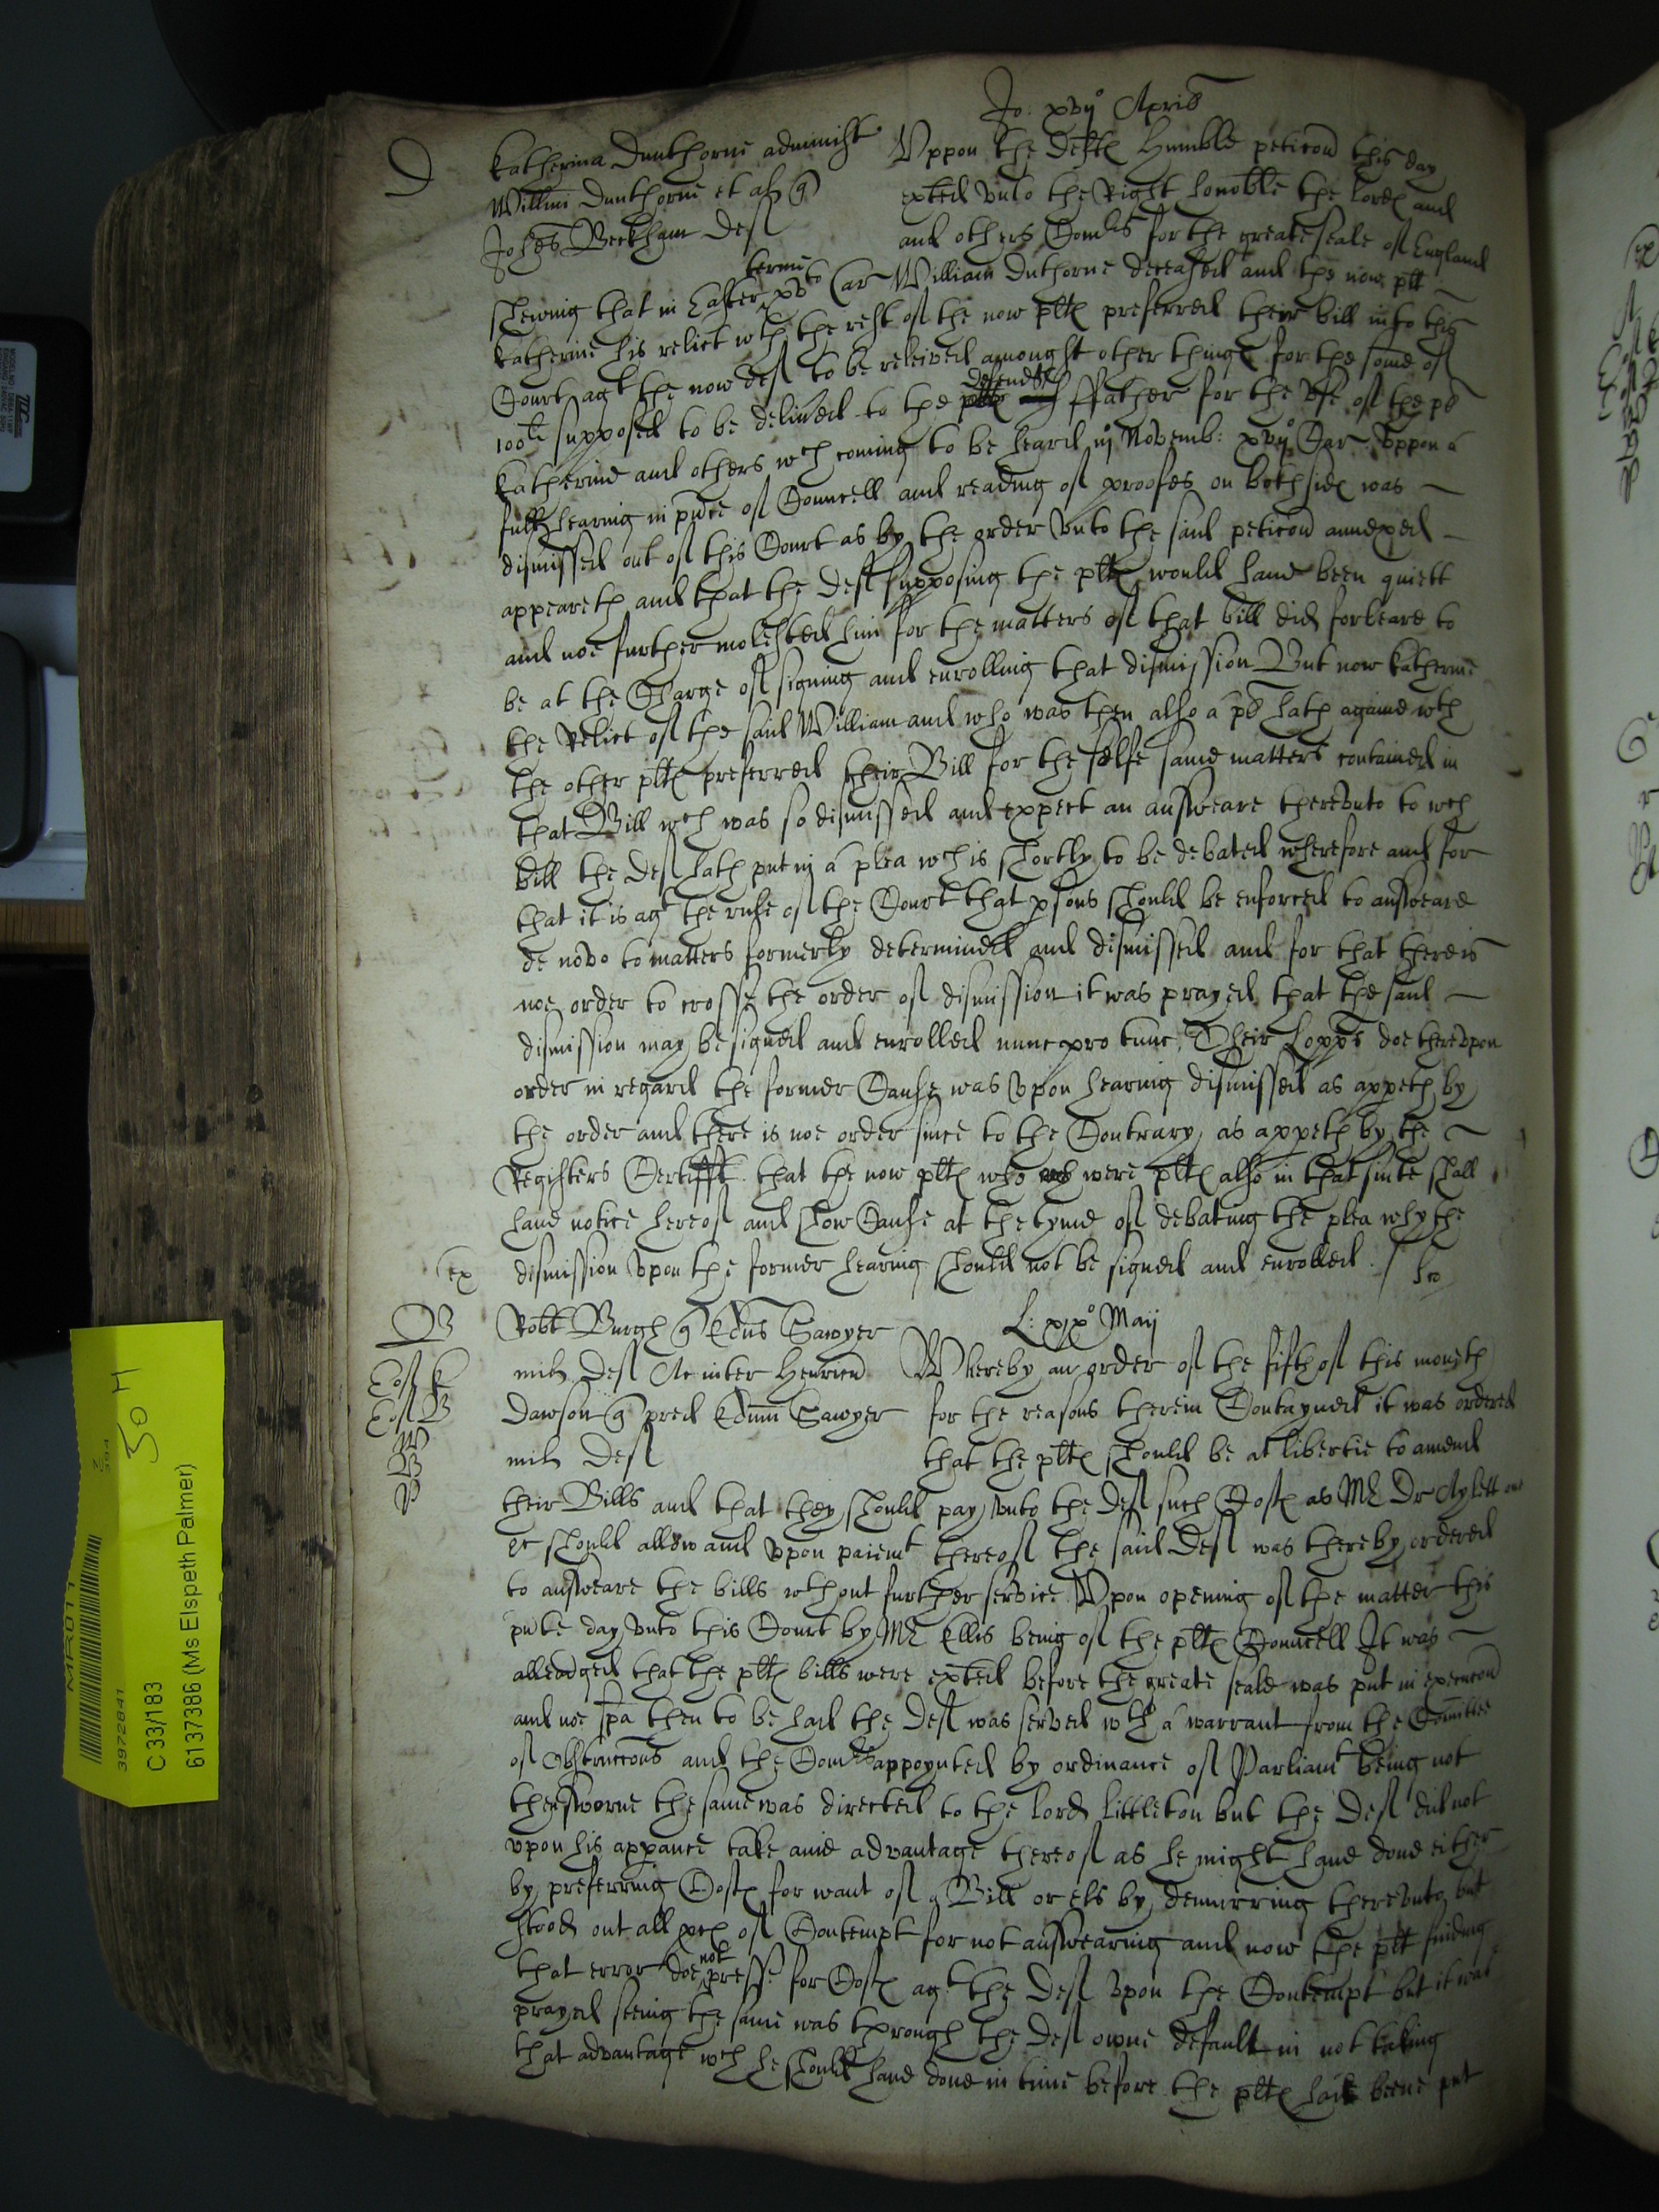 Jo: xvij° Aprilis
D
Katherina Dunthorne administr
Willmi Dunthorne et al q
Johes Beckham Def
Vppon the Defts Humble peticon this day
exted vnto the Right honoble the Lords and
and others Comrs for the greate seale of England
shewing that in Easter terme xvto Car William Duthorne deceased and the now plt
Katherine his relict wth the rest of the now plts preferred their bill into this
Court agt the now Def to be releived amongst other things for the some of
100li supposed to be delived to the defendts ffather for the vse of the pl
Katherine and others wch coming to be heard iij Novemb: xvij Car vppon a
full hearing in pnce of Councell and reading of proofes on both sides was
dismissed out of this Court as by the order vnto the said peticon annexed
appeareth and that the Deft supposing the plts would haue been quiett
and noe further molested him for the matters of that bill did forbeare to
be at the Charge of signing and enrolling that dismission But now Katherine
the Relict of the said William and who was then also a pl hath againe wth
the other plts preferred their Bill for the selfe same matters contained in
that Bill wch was so dismissed and expect an answeare therevnto to wch
bill the Def hath put in a plea wch is shortly to be debated wherefore and for
that it is agt the rule of the Court that psons should be enforced to answeare
de novo to matters formerly determined and dismissed and for that there is
noe order to crosse the order of dismission it was prayed that the said
dismission may be signed and enrolled nunc pro tunc, Their Lopps doe therevpon
order in regard the former Cause was vpon hearing dismissed as appeth by
the order and there is noe order since to the Contrary as appeth by the
Registers Certifft that the now plts who were plts also in that suite shall
haue notice hereof and show Cause at the tyme of debating the plea why the
dismission vpon the former hearing should not be signed and enrolled
ex
B
L: xix° Maij
Robt Burgh q Edus Sawyer
mil Def Ac inter Henricu
Dawson q pred Edmu Sawyer
mil Def
Whereby an order of the fifth of this moneth
for the reasons therein Contayned it was ordered
that the plts should be at libertie to amend
their Bills and that they should pay vnto the Def such Costs as Mr Dr Aylett one
&c should allow and vpon paiemt thereof the said Def was thereby ordered
to answeare the bills wthout further service Vpon opening of the matter this
pnte day vnto this Court by Mr Ellis being of the plts Councell It was
alleadged that the plts bills were exted before the greate seale was put in execucon
and noe spa then to be had the Deft was served wth a warrant from the Comittee
of Obstruccons and the Comrs appoynted by ordinance of Parliamt being not
then sworne the same was directed to the lord Littleton but the Def did not
vpon his appance take anie advantage thereof as he might haue done either
by preferring Costs for want of a Bill or els by demurring therevnto but
stood out all pces of Contempt for not answearing and now the plt finding
that error doe not presse for Costs agt the Def vpon the Contempt but it was
prayed seeing the same was through the Def owne default in not taking
that advantage wch he should haue done in time before the plts had beene put
MR011
3972841
C 33/183
6137386 (Ms Elspeth Palmer)
50 H